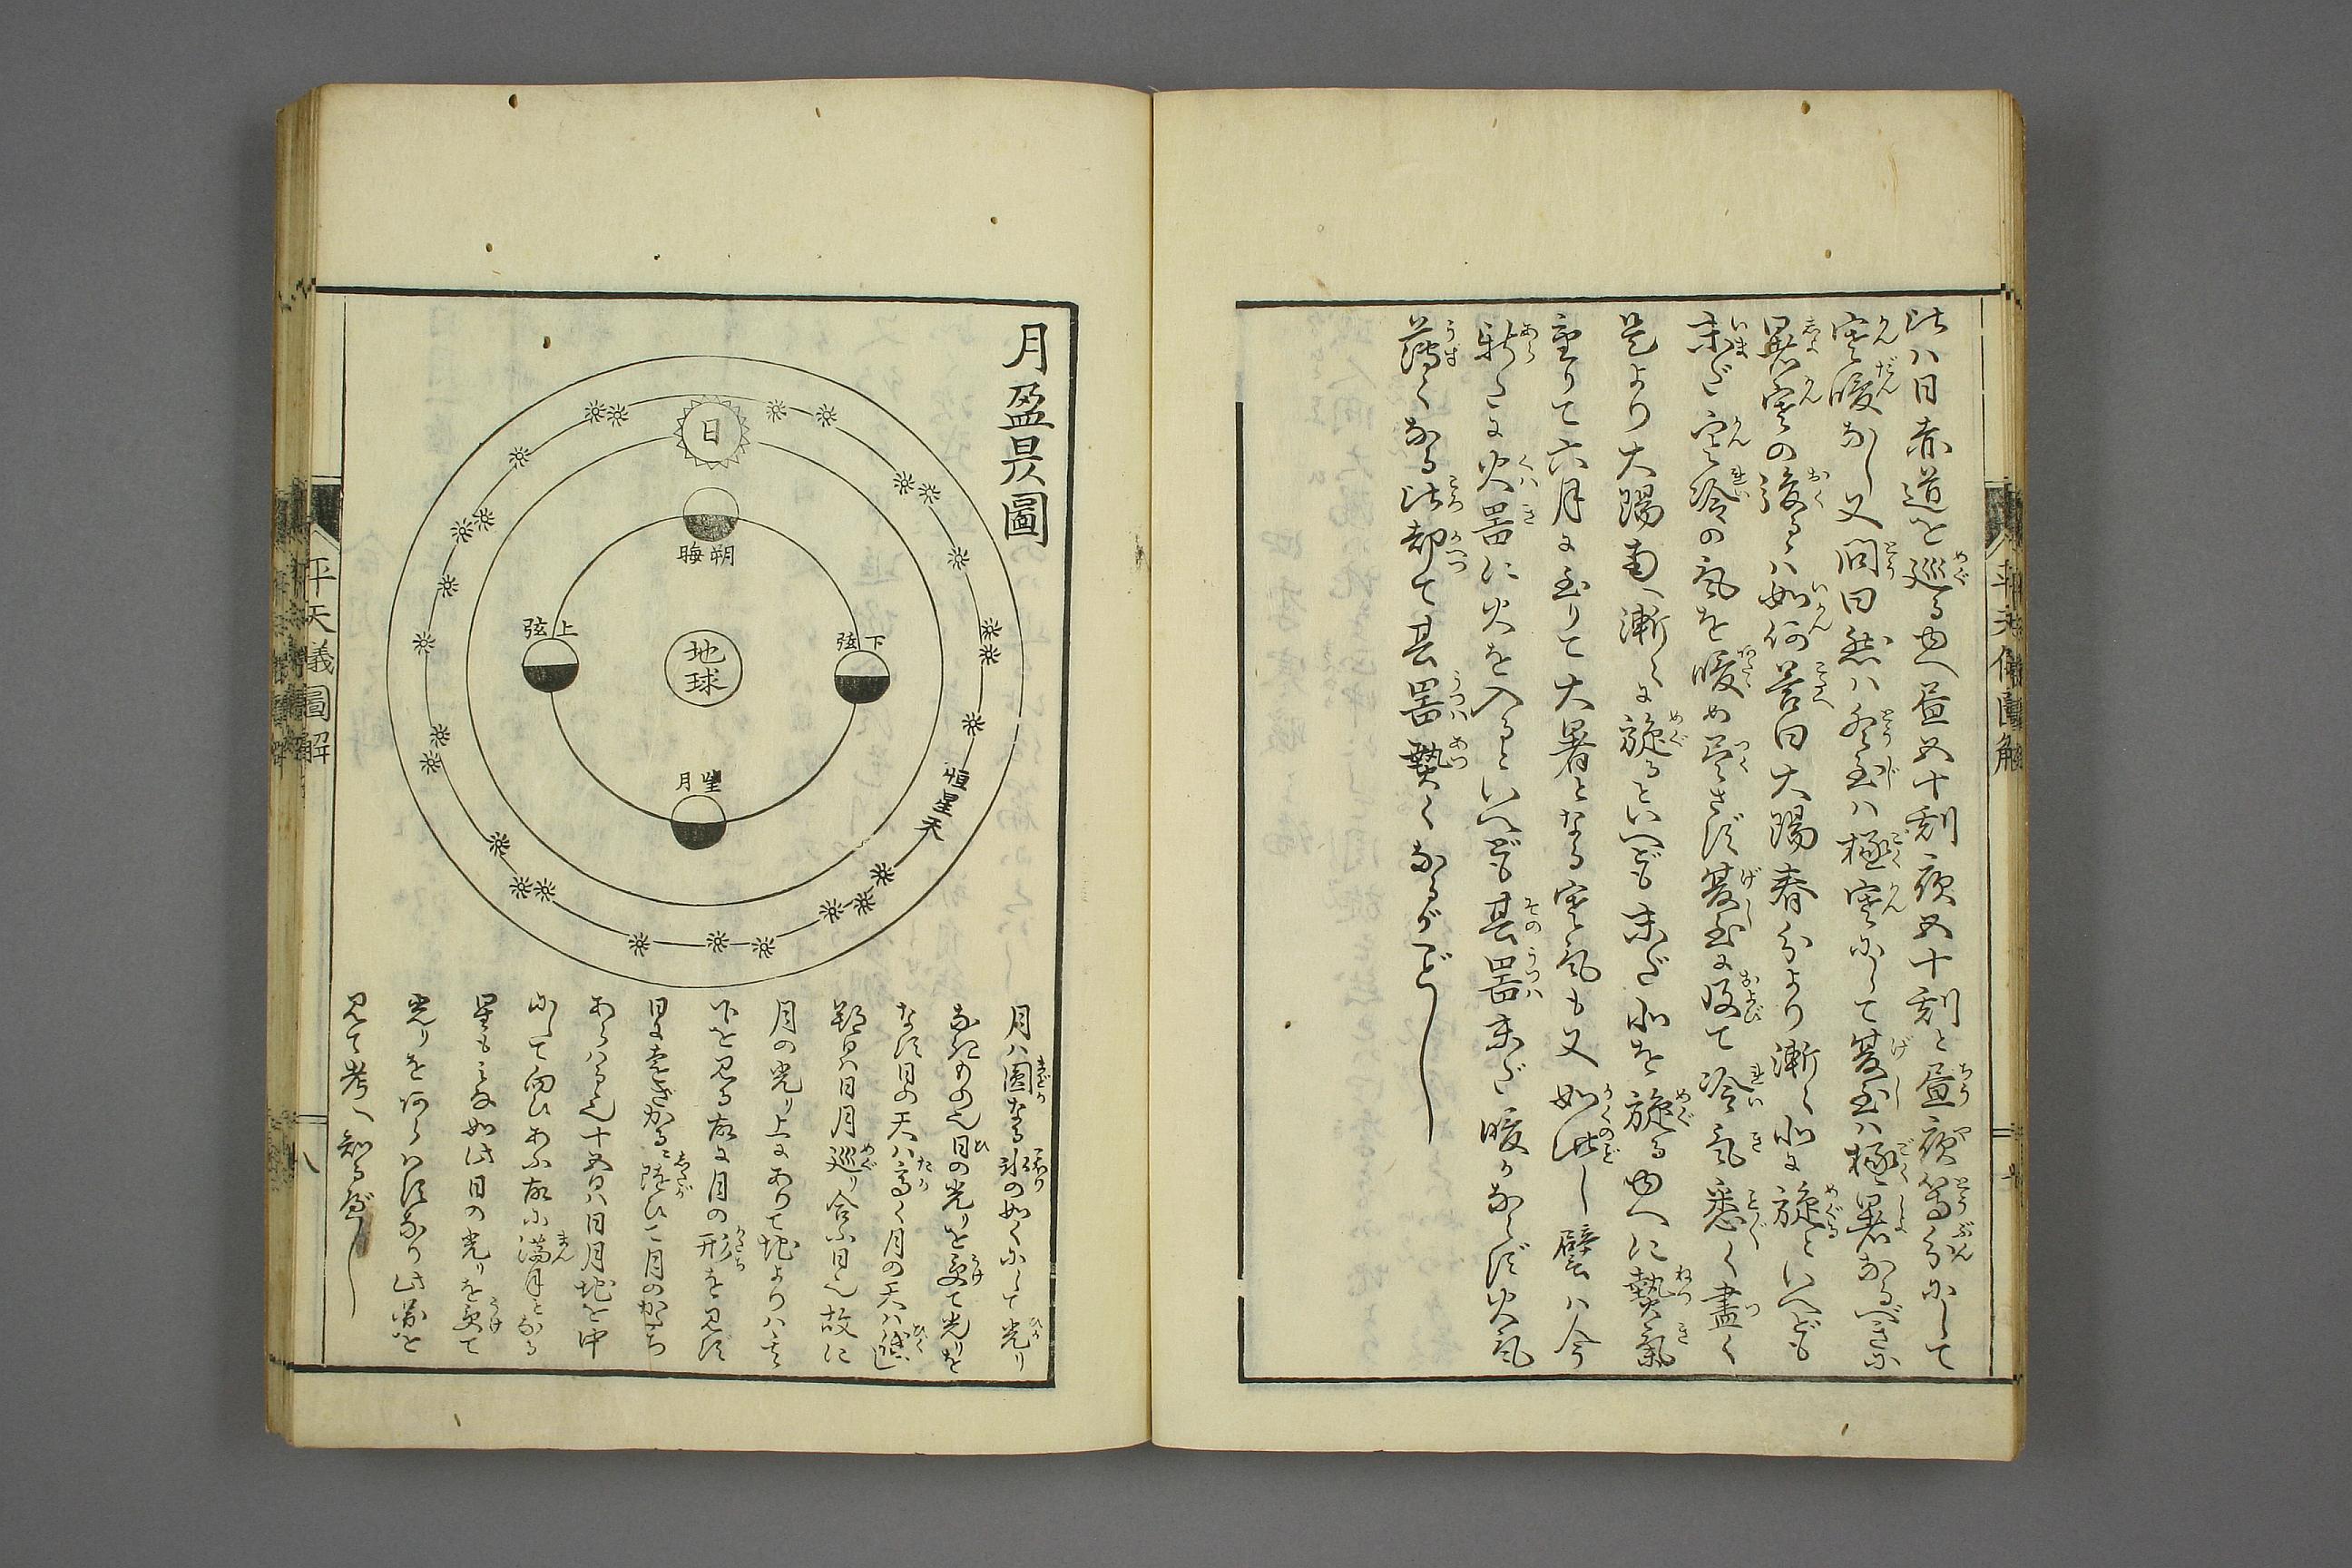 此ハ日赤道を巡る由へ昼五十刻夜五十刻と昼夜等分にして
寒暖なし又問曰然ハ冬至ハ極寒にして夏至ハ極暑なるべきに
暑寒の後るゝハ如何答曰大陽春分より漸く北に旋といへども
未だ寒冷の氣を暖め尽さず夏至に及て冷氣悉く盡く
是より大陽南へ漸くに旋るといへども未だ北を旋る由へに熱氣
重りて六月に至りて大暑となる寒氣も又如此し譬ハ今
新たに火器に火を入るゝといへども其器未だ暖かならず火氣
薄くなる比却て其器熱くなるがごとし
平天儀圖解
七
月盈昃圖
日
朔
晦
上弦
下弦
地球
望月
恒星天
月ハ圓なる氷の如くにして光り
なきもの也日の光りを受て光りを
なす日の天ハ高く月の天ハ低し
朔日ハ日月巡り合ふ日也故に
月の光り上にありて地よりハ其
下を見る故に月の形を見ず
日に遠ざかるに随ひて月のかたち
あらハるゝ也十五日ハ日月地を中
にして向ひあふ故に満月となる
星もみな如此日の光りを受て
光りをあらハすなり此圖を
見て考へ知るべし
平天儀圖解
八